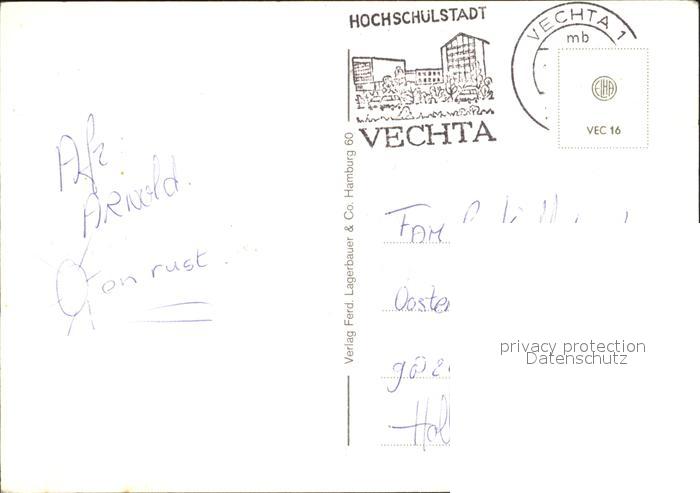 HOCHSCHULSTADT
VECHTA
VECHTA 1
mb
EHA
VEC 16
Verlag Ferd. Lagerbauer & Co. Hamburg 60
Afz:
ARNOld.
on rust
FAM
Ooste
Hol
privacy protection
Datenschutz